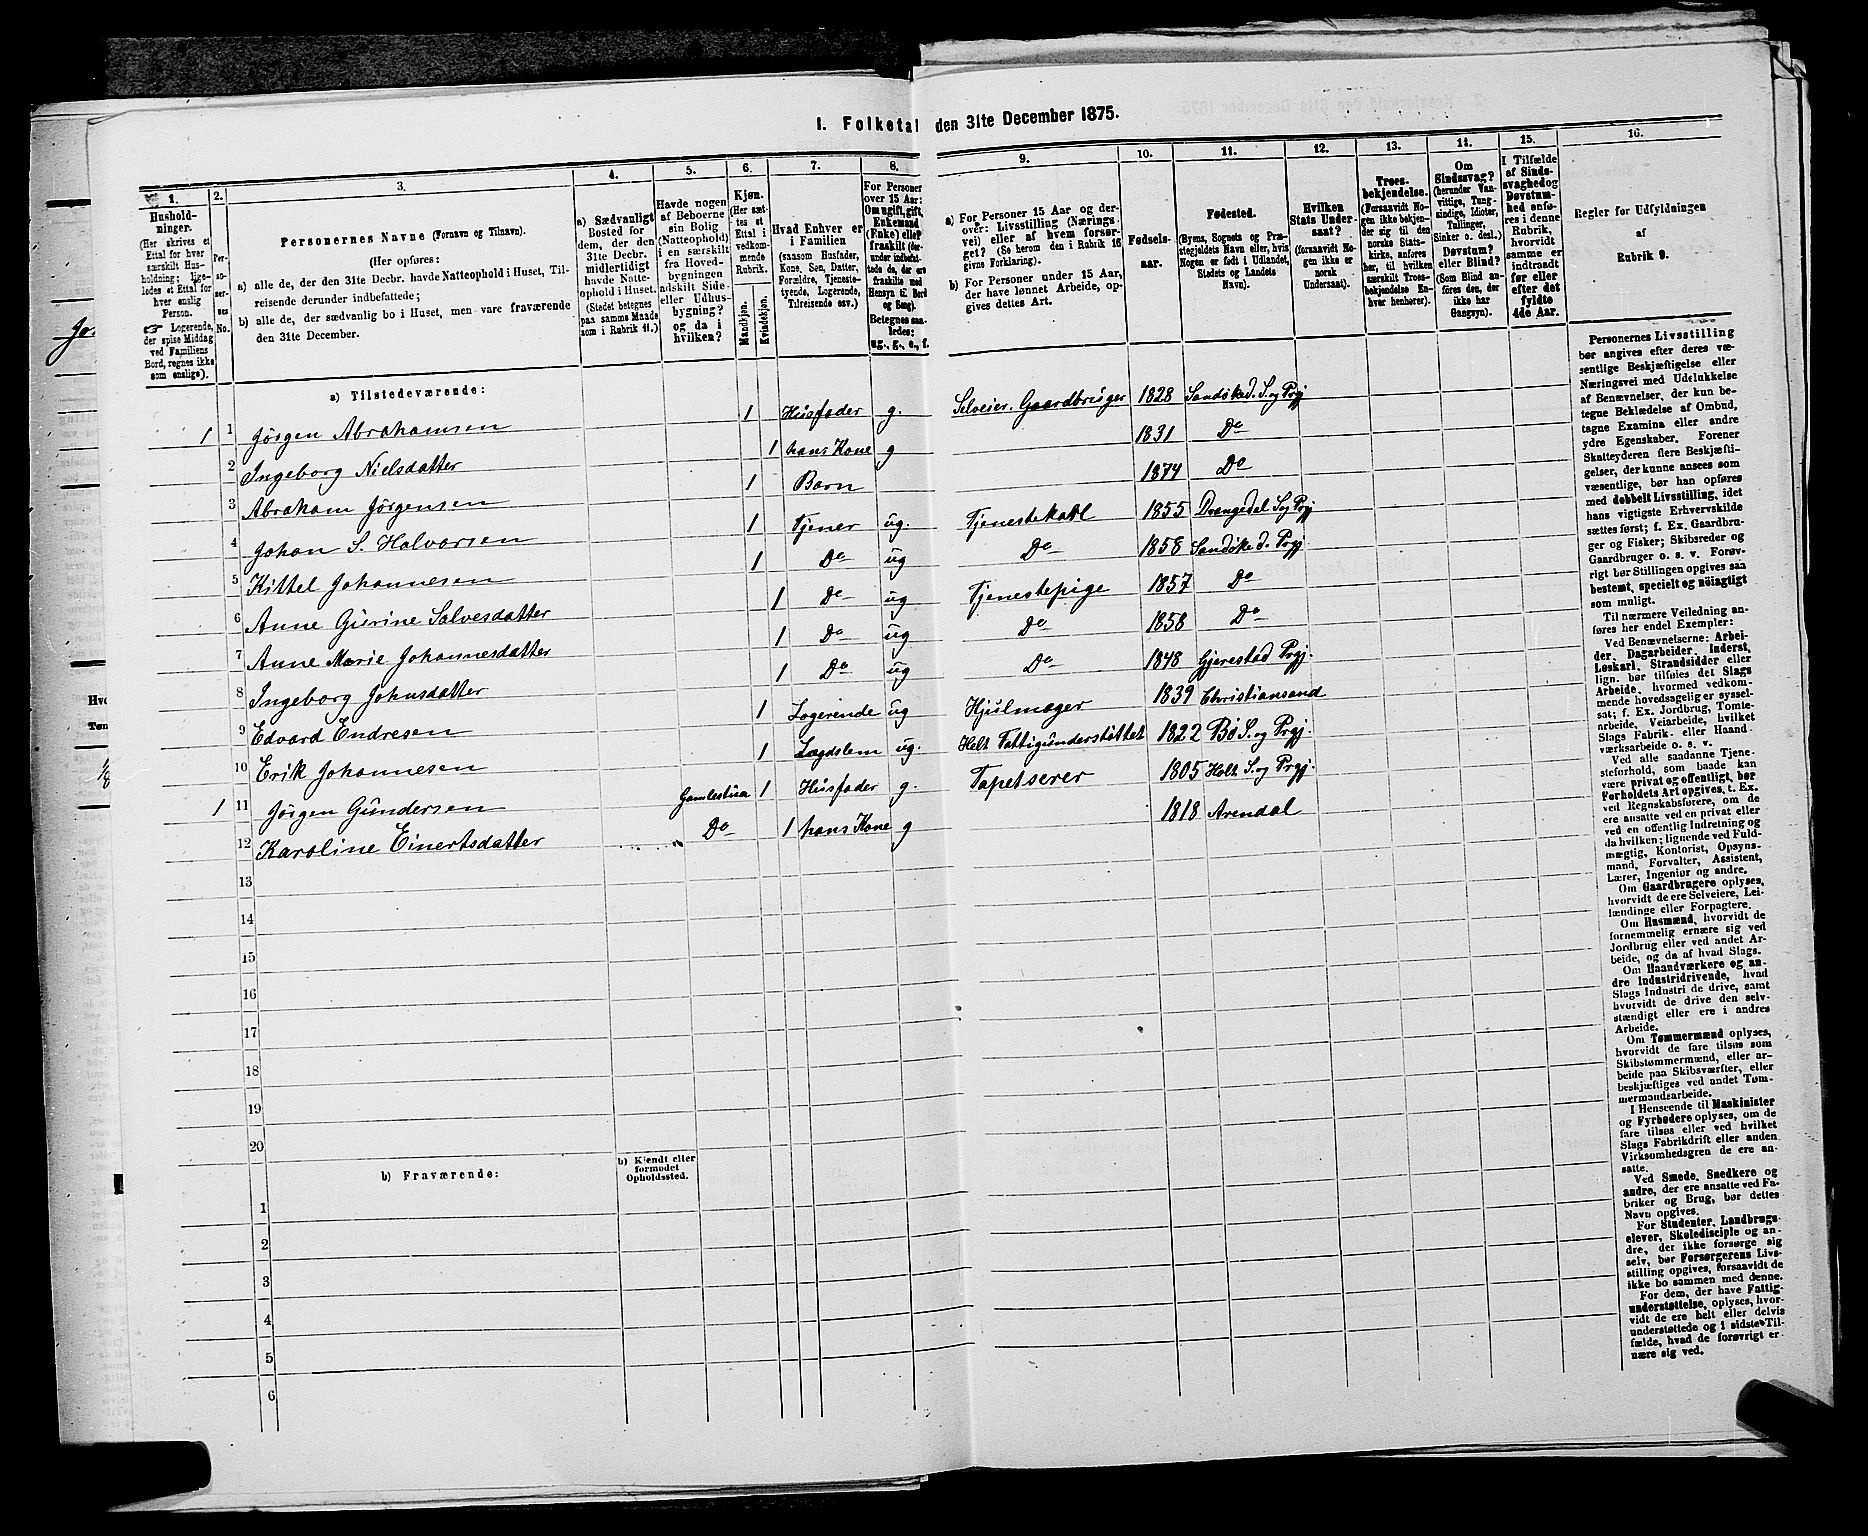 I. Folketal den 31te December 1875.
1. 2. 3. 4. 5. 6. 7. 8. 9. 10. 11. 12. 13. 14. 15. 16.
Hushold-
ninger.
(Her skrives et
Ettal for hver
særskilt Hus-
holdning; lige-
ledes et Ettal for
hver enslig
Person.
Logerende,
der spise Middag
ved Familiens
Bord, regnes ikke
som enslige).
Per-
so-
ner-
nes
No.
Personernes Navne (Fornavn og Tilnavn).
(Her opføres:
a) alle de, der den 31te Decbr. havde Natteophold i Huset, Til-
reisende derunder indbefattede;
b) alle de, der sædvanlig bo i Huset, men vare fraværende
den 31te December.
a) Sædvanligt
Bosted for
dem, der den
31te Decbr.
midlertidigt
havde Natte-
ophold i Huset.
(Stedet betegnes
paa samme Maade
som i Rubrik 11.)
Havde nogen
af Beboerne
sin Bolig
(Natteophold)
i en særskilt
fra Hoved-
bygningen
adskilt Side-
eller Udhus-
bygning?
og da i
hvilken?
Kjøn.
(Her sæt-
tes et
Ettal i
vedkom-
mende
Rubrik.
Mandkjøn.
Kvindekjøn.
Hvad Enhver er
i Familien
(saasom Husfader,
Kone, Søn, Datter,
Forældre, Tjeneste-
tyende, Logerende,
Tilreisende osv.)
For Personer
over 15 Aar:
Om ugift, gift,
Enkemand
(Enke) eller
fraskilt (der-
under indbefat-
tede de, der ere
fraskilte med
Hensyn til Bord
og Seng).
Betegnes saa-
ledes:
ug., g., e., f.
a) For Personer 15 Aar og der-
over: Livsstilling (Nærings-
vei) eller af hvem forsør-
get? (Se herom den i Rubrik 16
givne Forklaring).
b) For Personer under 15 Aar,
der have lønnet Arbeide, op-
gives dettes Art.
Fødsels-
aar.
Fødested.
(Byens, Sognets og Præ-
stegjeldets Navn eller, hvis
Nogen er født i Udlandet,
Stedets og Landets
Navn).
Hvilken
Stats Under-
saat?
(forsaavidt No-
gen ikke er
norsk
Undersaat).
Troes-
bekjendelse.
(Forsaavidt No-
gen ikke bekjen-
der sig til den
norske Stats-
kirke, anføres
her, til hvilken
særskilt Troes-
bekjendelse En-
hver henhører).
Om
Sindssvag?
(herunder Van-
vittige, Tung-
sindige, Idioter,
Tullinger,
Sinker o. desl.)
Døvstum?
eller Blind?
(Som Blind an-
føres den, der
ikke har
Gangsyn).
I Tilfælde
af Sinds-
svaghed og
Døvstum-
hed anfø-
res i denne
Rubrik,
hvorvidt
samme er
indtraadt
før eller
efter det
fyldte
4de Aar.
Regler for Udfyldningen
af
Rubrik 9.
a) Tilstedeværende:
1 1 Jörgen Abrahamsen 1 Husfader g. Selveier. Gaardbruger 1828 Sandöked. S. og Prgj
2 Ingeborg Nielsdatter 1 hans Kone g 1831 Do
3 Abraham Jörgensen 1 Barn 1874 Do
4 Johan S. Halvorsen 1 Tjener ug. Tjenestekarl 1855 Drangedal S og Prgj
5 Kittel Johannesen 1 Do ug Do 1858 Sandöked. Prgj
6 Anne Gurine Salvesdatter 1 Do ug Tjenestepige 1857 Do
7 Anne Marie Johannesdatter 1 Do ug Do 1858 Do
8 Ingeborg Johnsdatter 1 Do ug Do 1848 Gjerestad Prgj.
9 Edvard Endresen 1 Logerende ug Hjulmager 1839 Christiansand
10 Erik Johannesen 1 Lægdslem ug. Helt Fattigunderstöttet 1822 Bö S. og Prgj.
1 11 Jörgen Gundersen Gamlestua 1 Husfader g. Tapetserer 1805 Holt S. og Prgj.
12 Karoline Einertsdatter Do 1 hans Kone g 1818 Arendal
13
14
15
16
17
18
19
20
b) Fraværende:
b) Kjendt eller
formodet
Opholdssted.
1
2
3
4
5
6
Personernes Livsstilling
bør angives efter deres væ-
sentlige Beskjæftigelse eller
Næringsvei med Udelukkelse
af Benævnelser, der kun be-
tegne Beklædelse af Ombud,
tagne Examina eller andre
ydre Egenskaber. Forener
Skatteyderen flere Beskjæfti-
gelser, der kunne ansees som
væsentlige, bør han opføres
med dobbelt Livsstilling, idet
hans vigtigste Erhvervskilde
sættes først; f. Ex. Gaardbru-
ger og Fisker; Skibsreder og
Gaardbruger o. s. v. Forøv-
rigt bør Stillingen opgives saa
bestemt, specielt og nøiagtigt
som muligt.
Til nærmere Veiledning an-
føres her endel Exempler:
Ved Benævnelserne: Arbei-
der, Dagarbeider, Inderst,
Løskarl, Strandsidder eller
lign. bør tilføies det Slags
Arbeide, hvormed vedkom-
mende hovedsagelig er syssel-
sat; f. Ex. Jordbrug, Tomte-
arbeide, Veiarbeide, hvilket
Slags Fabrik- eller Haand-
værksarbeide o. s. v.
Ved alle saadanne Tjene-
steforhold, som baade kan
være privat og offentligt, bør
Forholdets Art opgives, t. Ex.
ved Regnskabsførere, om de
ere ansatte ved en privat eller
ved en offentlig Indretning og
da hvilken; lignende ved Fuld-
mægtig, Kontorist, Opsyns-
mand, Forvalter, Assistent,
Lærer, Ingeniør og andre.
Om Gaardbrugere oplyses,
hvorvidt de ere Selveiere, Lei-
lændinge eller Forpagtere.
Om Husmænd, hvorvidt de
fornemmelig ernære sig ved
Jordbrug eller ved andet Ar-
beide, og da af hvad Slags.
Om Haandværkere og an-
dre Industridrivende, hvad
Slags Industri de drive, samt
hvorvidt de drive den selv-
stændigt eller ere i andres
Arbeide.
Om Tømmermænd oplyses,
hvorvidt de fare tilsøs som
Skibstømmermænd, eller ar-
beide paa Skibsværfter, eller
beskjæftiges ved andet Tøm-
mermandsarbeide.
I Henseende til Maskinister
og Fyrbødere oplyses, om de
fare tilsøs eller ved hvilket
Slags Fabrikdrift eller anden
Virksomhedsgren de ere an-
satte.
Ved Smede, Snedkere og
andre, der ere ansatte ved Fa-
briker og Brug, bør dettes
Navn opgives.
For Studenter, Landbrugs-
elever, Skoledisciple og an-
dre, der ikke forsørge sig
selv, bør Forsørgerens Livs-
stilling opgives, forsaavidt de
ikke bo sammen med denne.
For dem, der have Fattig-
understøttelse, oplyses, hvor-
vidt de ere helt eller delvis
understøttede og i sidste Til-
fælde, hvad de forøvrigt er-
nære sig ved.